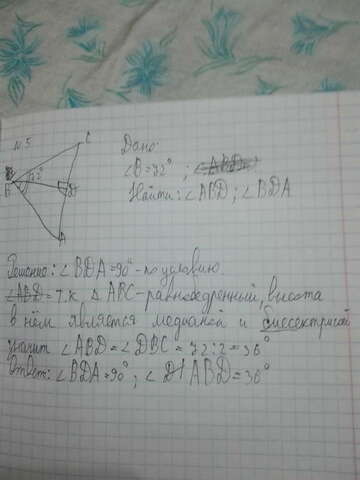 N 5
C
Дано:
∠B=72° ;
72°
B
D
Найти: ∠ABD; ∠BDA
A
Решение: ∠BDA=90°-по условию.
∠ABD= т.к. △ ABC-равнобедренный, высота
в нём является медианой и биссектрисой
значит ∠ABD=∠DBC=72:2=36°
Ответ: ∠BDA=90°; ∠ ABD=36°